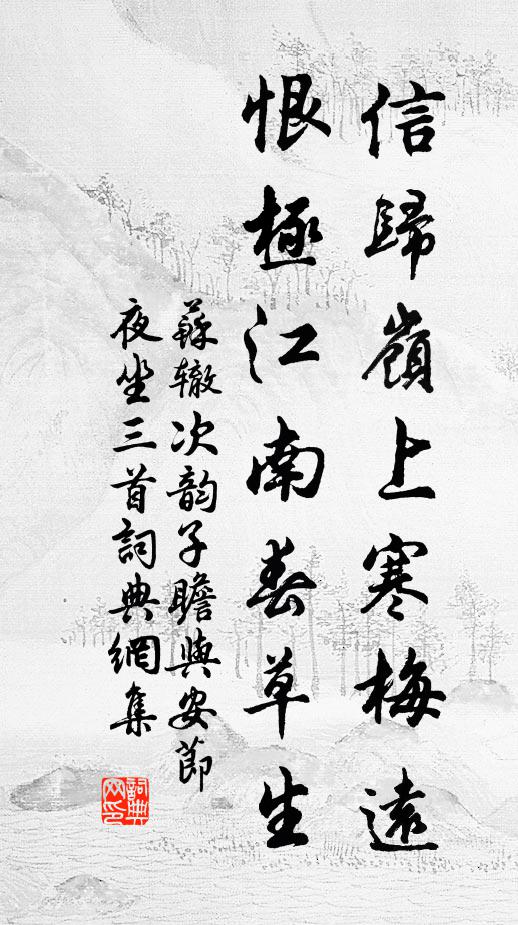 信歸嶺上寒梅遠
恨極江南春草生
蘇辙次韵子瞻與安節
夜坐三首詞典網集
詞典
网印